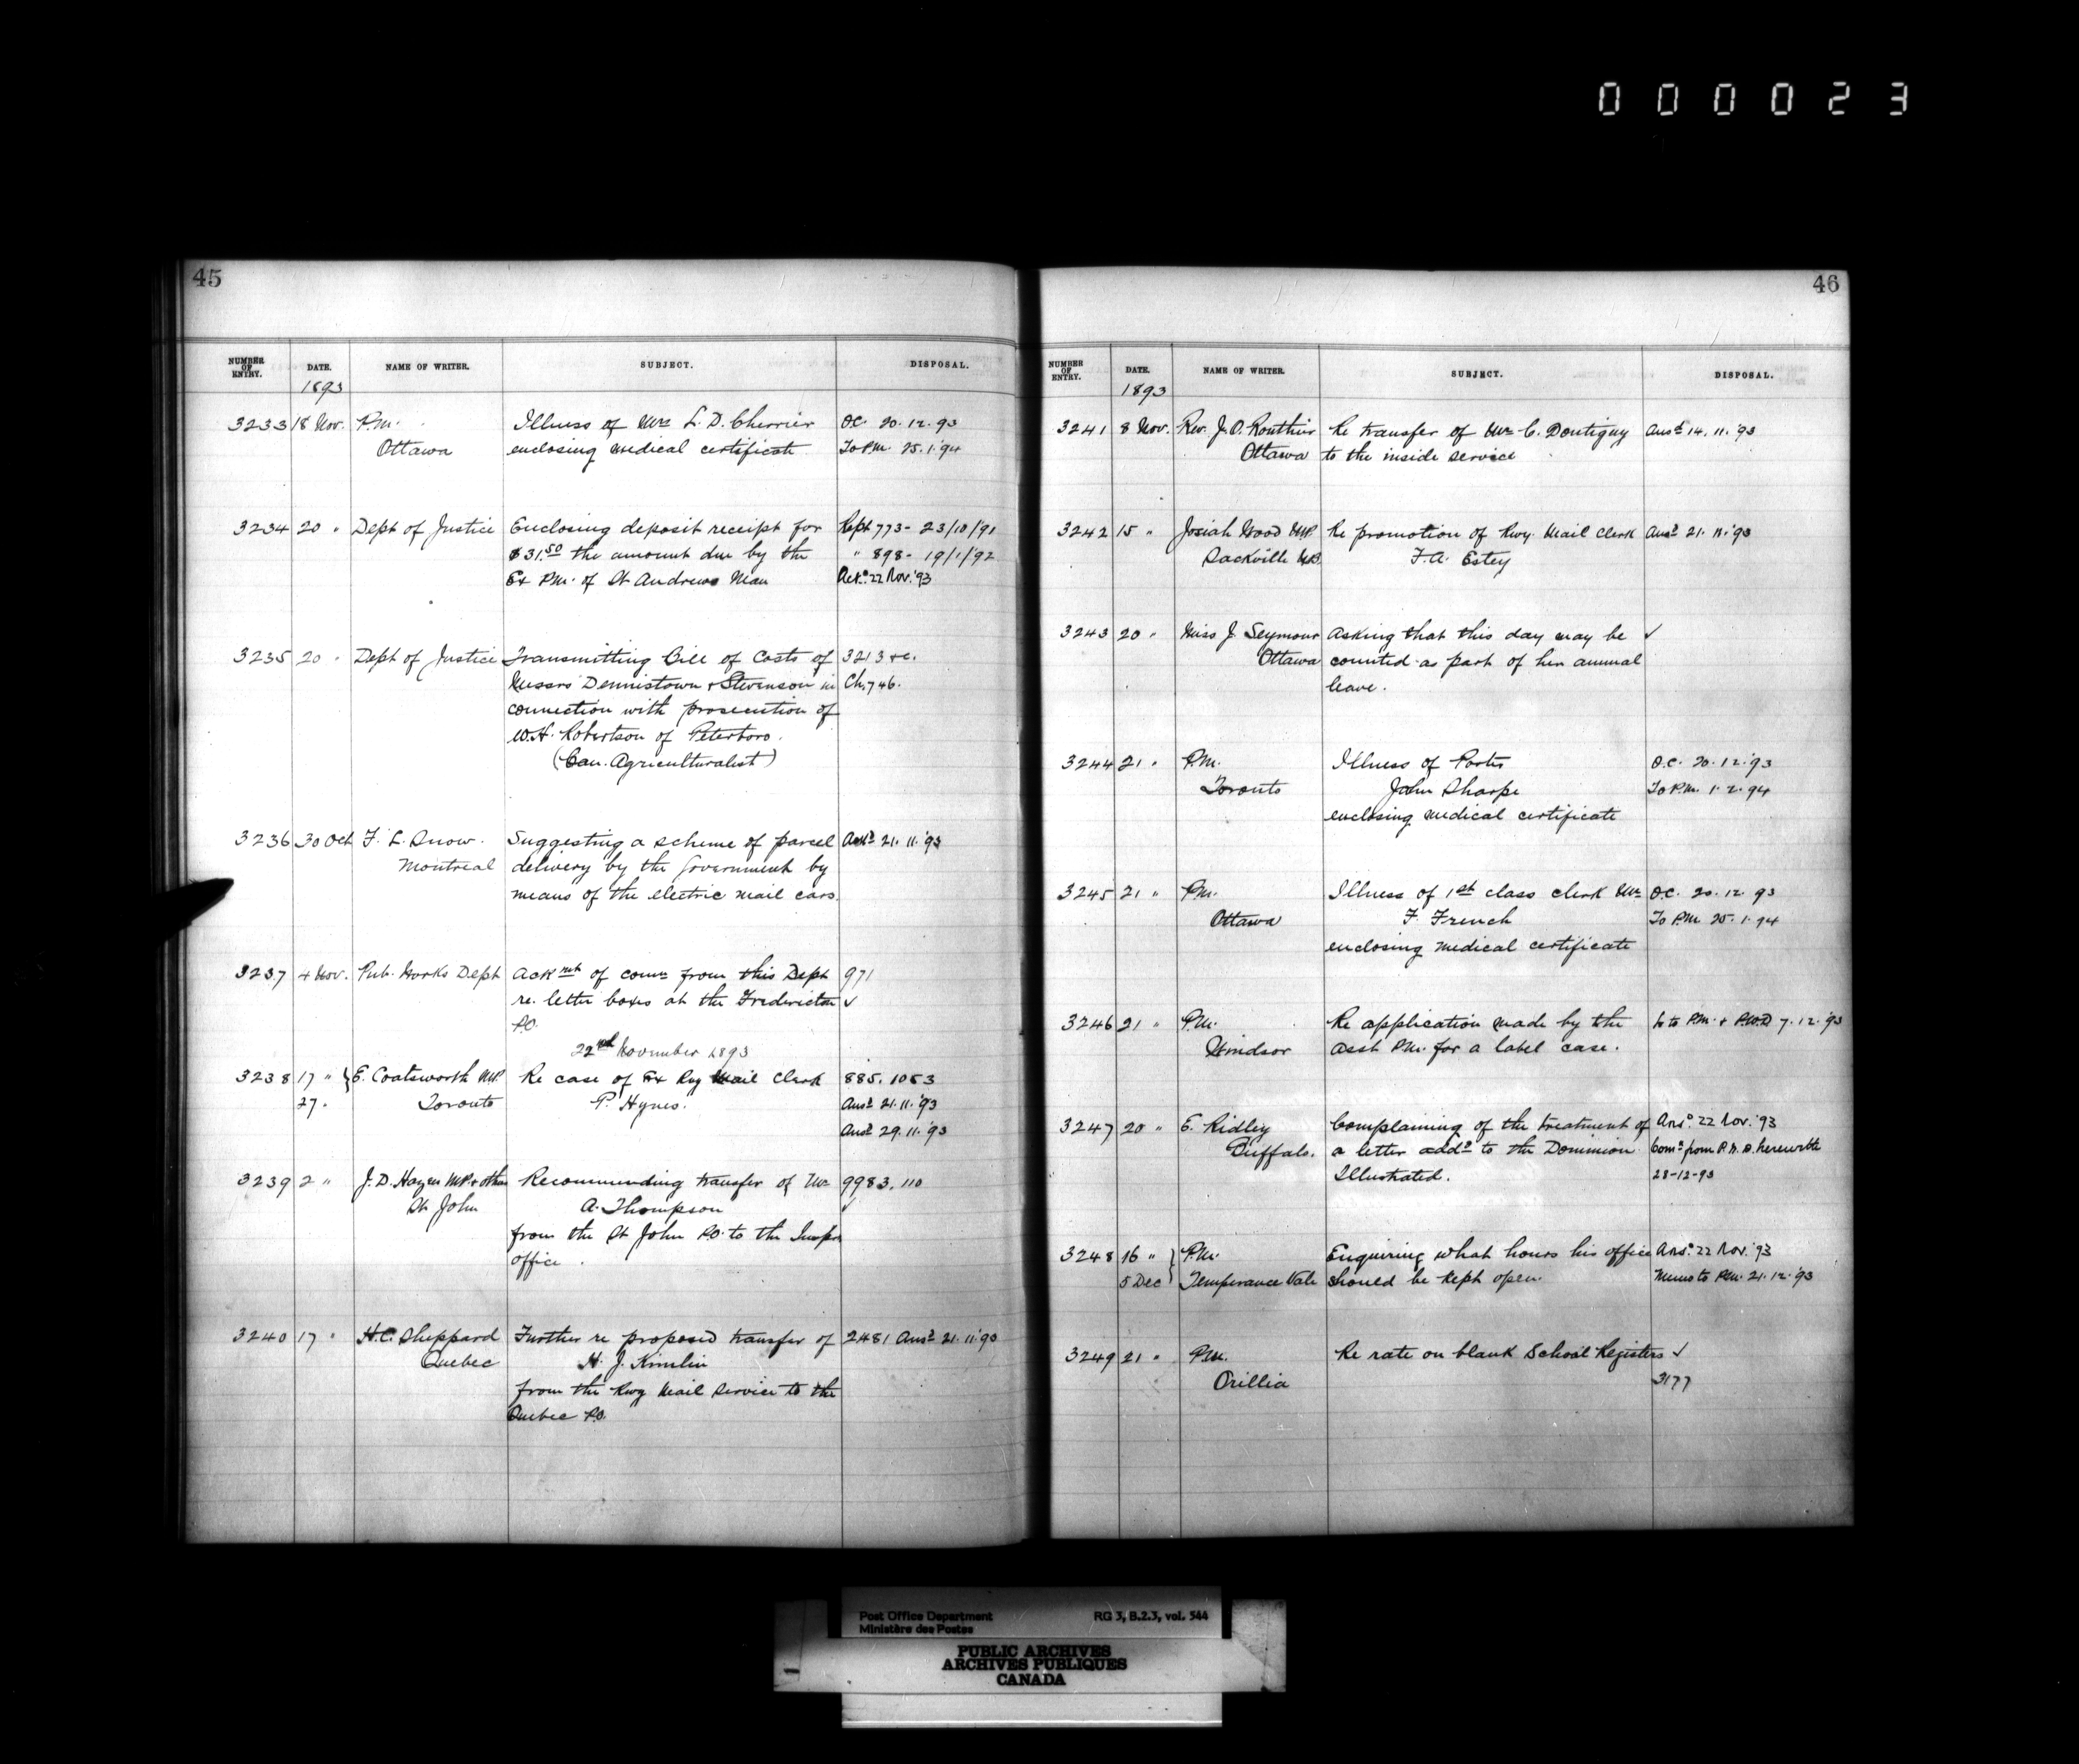 000023
45
NUMBER OF ENTRY. DATE. NAME OF WRITER. SUBJECT. DISPOSAL.
1893
3233 18 Nov. P.M. Illness of Mr L. D. Cherrier O.C. 20.12.93
Ottawa enclosing medical certificate To P.M. 25.1.94
3234 20 " Dept of Justice Enclosing deposit receipt for Rept 773 - 23/10/91
$31.50 the amount due by the " 898 - 19/1/92
Ex P.M. of St Andrews Man Ack.d 22 Nov. '93
3235 20 " Dept of Justice Transmitting Bill of Costs of 3213 &c.
Messrs Dennistown & Stevenson in Ch. 746.
connection with prosecution of
W.H. Robertson of Peterboro.
(Can. Agriculturalist)
3236 30 Oct F. L. Snow. Suggesting a scheme of parcel Ack.d 21.11.'93
Montreal delivery by the Government by
means of the electric mail cars.
3237 4 Nov. Pub. Works Dept Ackmt of comn from this Dept 971
re. letter boxes at the Fredericton ✓
P.O.
22nd November 1893
3238 17 " } E. Coatsworth M.P. Re case of Ex Rwy Mail Clerk 885. 1053
27 " Toronto P. Hynes. Ansd 21.11.'93
Ansd 29.11.'93
3239 2 " J. D. Hazen M.P. & others Recommending transfer of Mr 9983. 110
St John A. Thompson ✓
from the St John P.O. to the Inspr
office.
3240 17 " H.C. Sheppard Further re proposed transfer of 2481 Ansd 21.11.'93
Quebec H. J. Kimlin
from the Rwy Mail Service to the
Quebec P.O.
46
NUMBER OF ENTRY. DATE. NAME OF WRITER. SUBJECT. DISPOSAL.
1893
3241 8 Nov. Rev. J. O. Routhier Re transfer of Mr C. Dontigny Ansd 14.11.'93
Ottawa to the inside service
3242 15 " Josiah Wood M.P. Re promotion of Rwy. Mail Clerk Ansd 21.11.'93
Sackville N.B. F. A. Estey
3243 20 " Miss J. Seymour Asking that this day may be ✓
Ottawa counted as part of her annual
leave.
3244 21 " P.M. Illness of Porter O.C. 20.12.'93
Toronto John Sharpe To P.M. 1.2.94
enclosing medical certificate
3245 21 " P.M. Illness of 1st class clerk Mr O.C. 20.12.93
Ottawa F. French To P.M. 25.1.94
enclosing medical certificate
3246 21 " P.M. Re application made by the to P.M. & P.W.D 7.12.'93
Windsor Asst P.M. for a label case.
3247 20 " E. Ridley Complaining of the treatment of Ans.d 22 Nov. '93
Buffalo. a letter addd to the Dominion Comn from P.M. B. herewith
Illustrated. 28-12-93
3248 16 " } P.M. Enquiring what hours his office Ans.d 22 Nov. '93
5 Dec Temperance Vale should be kept open. Memo to P.M. 21.12.'93
3249 21 " P.M. Re rate on blank School Registers ✓
Orillia 3177
Post Office Department RG 3, B.2.3, vol. 544
Ministère des Postes
PUBLIC ARCHIVES
ARCHIVES PUBLIQUES
CANADA